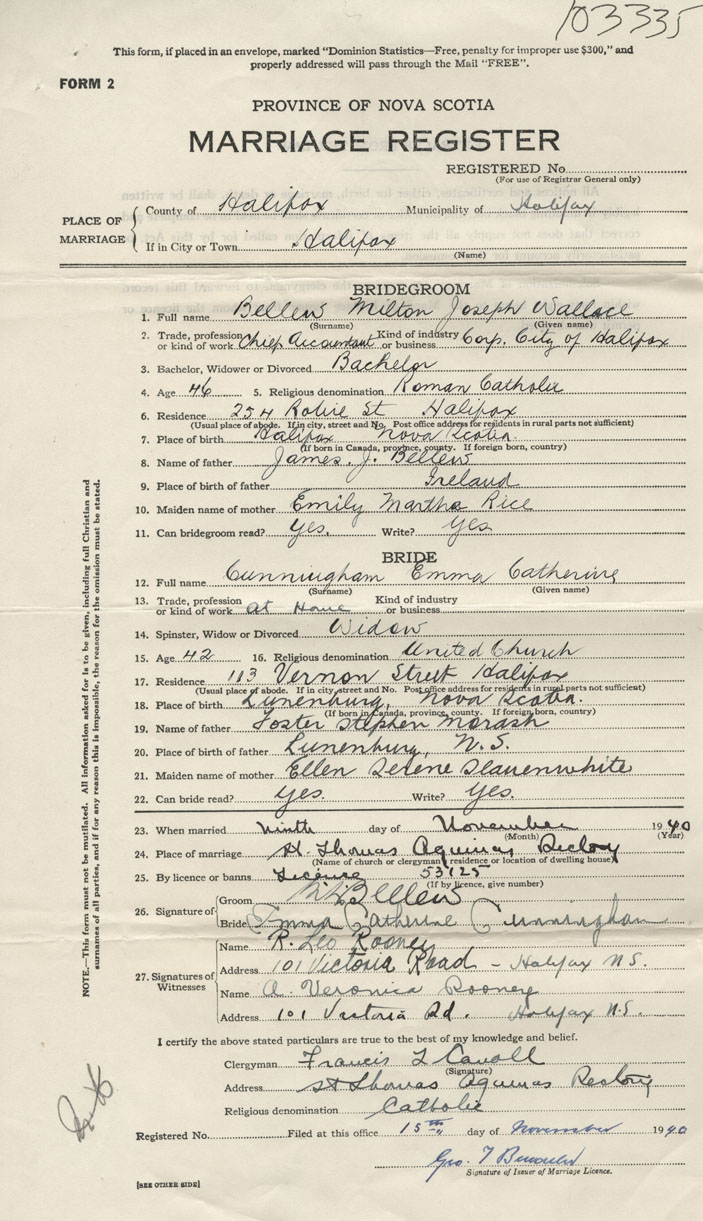 103335
This form, if placed in an envelope, marked "Dominion Statistics—Free, penalty for improper use $300," and
properly addressed will pass through the Mail "FREE".
FORM 2
PROVINCE OF NOVA SCOTIA
MARRIAGE REGISTER
REGISTERED No.
(For use of Registrar General only)
PLACE OF MARRIAGE
County of Halifax Municipality of Halifax
If in City or Town Halifax
(Name)
BRIDEGROOM
1. Full name Bellew Milton Joseph Wallace
(Surname) (Given name)
2. Trade, profession or kind of work Chief Accountant Kind of industry or business Corp. City of Halifax
3. Bachelor, Widower or Divorced Bachelor
4. Age 46 5. Religious denomination Roman Catholic
6. Residence 254 Robie St Halifax
(Usual place of abode. If in city, street and No. Post office address for residents in rural parts not sufficient)
7. Place of birth Halifax Nova Scotia
(If born in Canada, province, county. If foreign born, country)
8. Name of father James. J. Bellew
9. Place of birth of father Ireland
10. Maiden name of mother Emily Martha Rice
11. Can bridegroom read? Yes. Write? Yes
BRIDE
12. Full name Cunningham Emma Catherine
(Surname) (Given name)
13. Trade, profession or kind of work at Home Kind of industry or business
14. Spinster, Widow or Divorced Widow
15. Age 42 16. Religious denomination United Church
17. Residence 113 Vernon Street Halifax
(Usual place of abode. If in city, street and No. Post office address for residents in rural parts not sufficient)
18. Place of birth Lunenburg, Nova Scotia.
(If born in Canada, province, county. If foreign born, country)
19. Name of father Foster Stephen Morash
20. Place of birth of father Lunenburg, N.S.
21. Maiden name of mother Ellen Serene Slauenwhite
22. Can bride read? Yes. Write? Yes.
23. When married Ninth day of November 1940
(Month) (Year)
24. Place of marriage St. Thomas Aquinas Rectory
(Name of church or clergyman residence or location of dwelling house)
25. By licence or banns License 53125
(If by licence, give number)
26. Signature of Groom Bellew
Bride Emma Catherine Cunningham
27. Signatures of Witnesses
Name R. Leo Rooney
Address 101 Victoria Road - Halifax N.S.
Name A. Veronica Rooney
Address 101 Victoria Rd. Halifax N.S.
I certify the above stated particulars are true to the best of my knowledge and belief.
Clergyman Francis L Carroll
(Signature)
Address St Thomas Aquinas Rectory
Religious denomination Catholic
Registered No. Filed at this office 15th day of November 1940
Geo. T
Signature of Issuer of Marriage Licence.
[SEE OTHER SIDE]
NOTE.—This form must not be mutilated. All information asked for is to be given, including full Christian and
surnames of all parties, and if for any reason this is impossible, the reason for the omission must be stated.